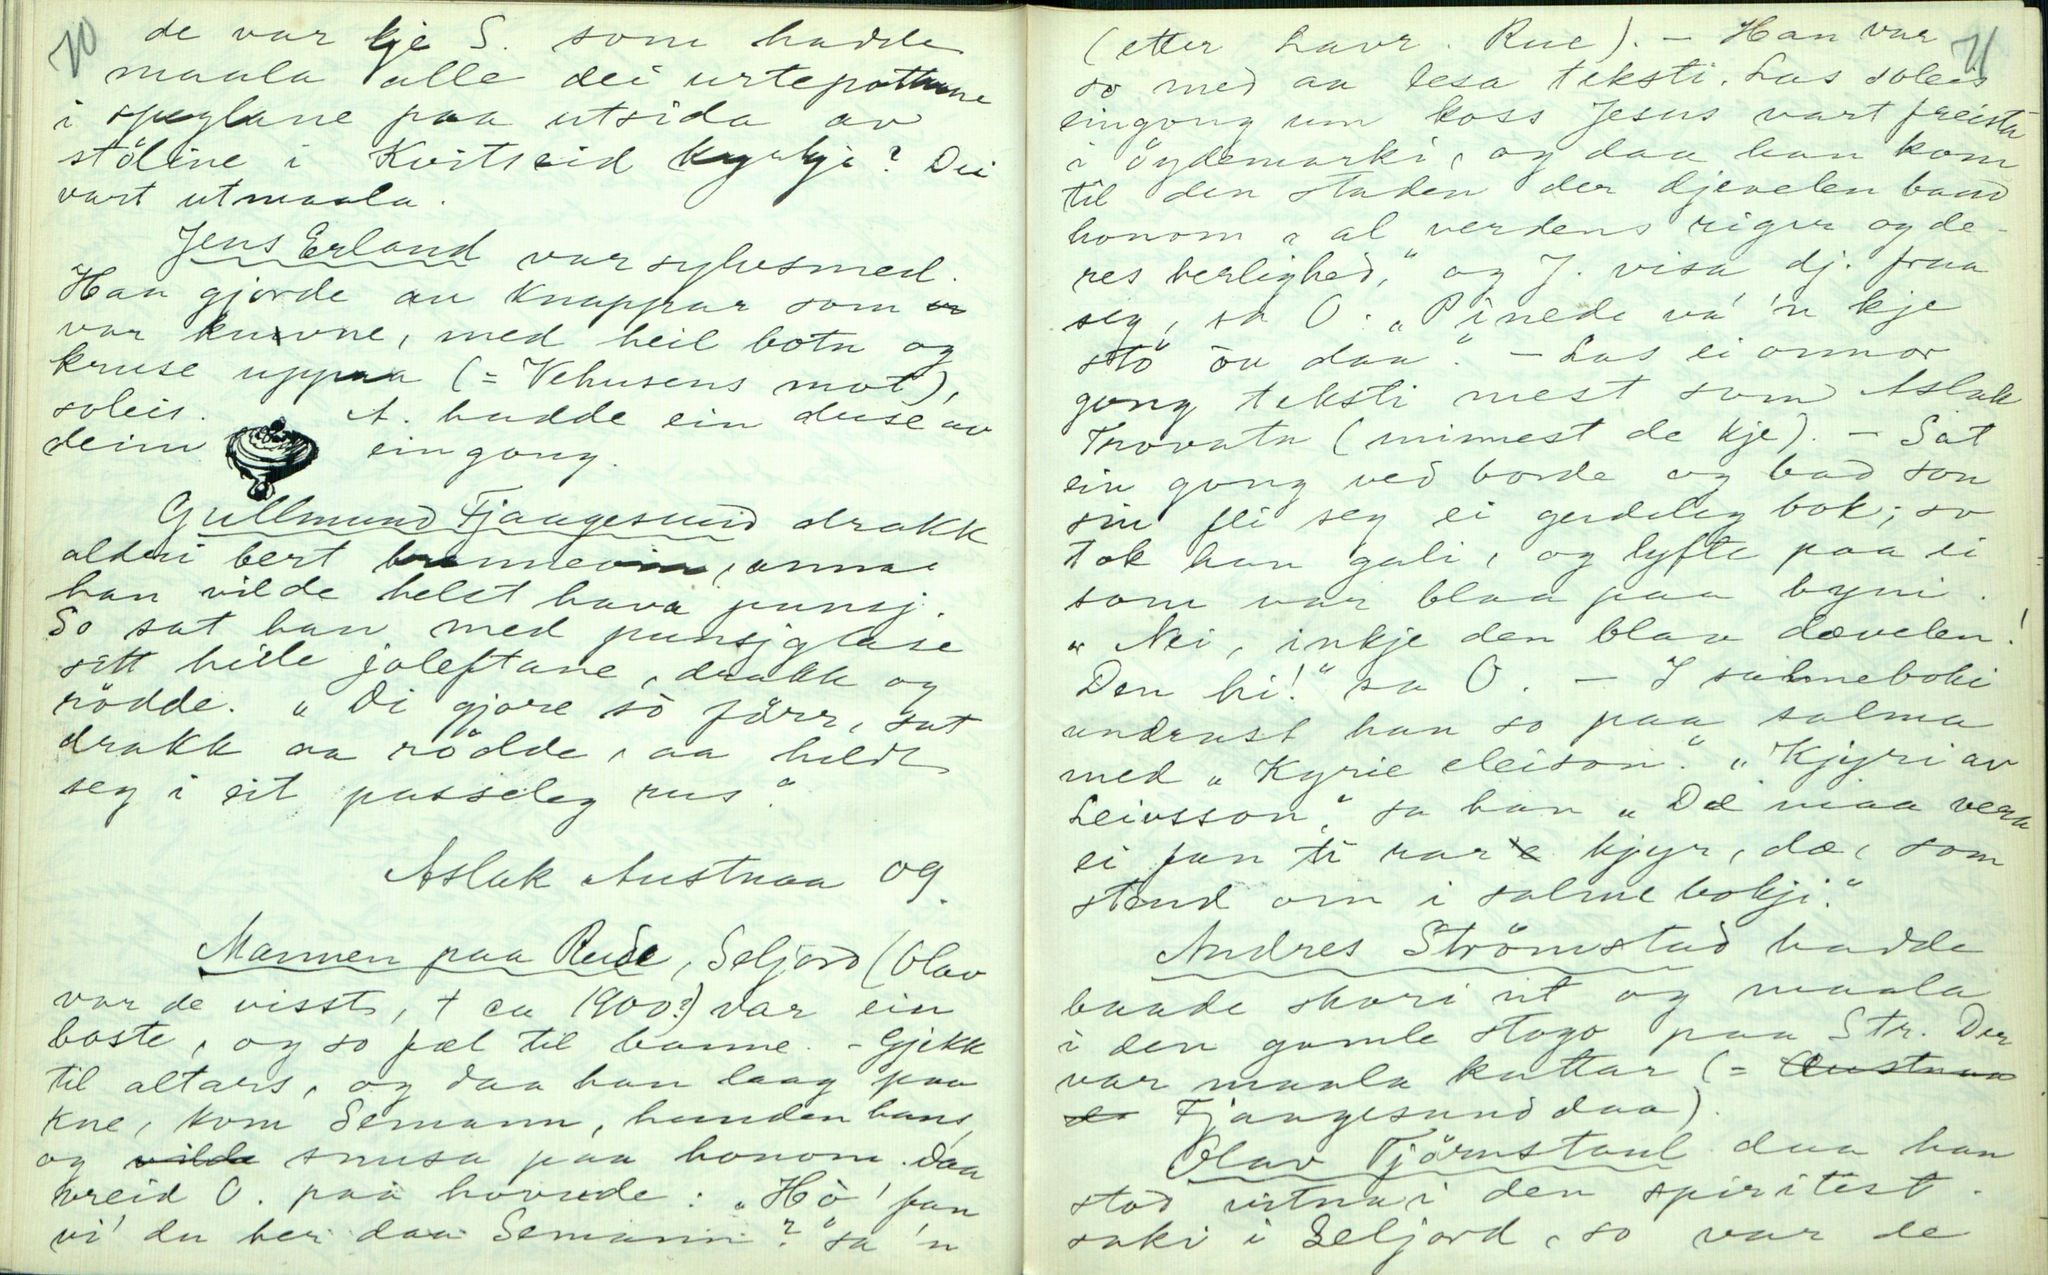 70
de var kje S. som hadde
maala alle dei urtepottune
i speglane paa utsida av
stöline i Kvitseid kyrkje? Dei
vart utmaala.
Jens Erland var sylvsmed.
Han gjorde au knappar som
var kuvne, med heil botn og
kruse uppaa (= Vehusens mot),
soleis. A. hadde ein duse av
deim eingong.
Gullmund Fjaagesund drakk
alderi bert brennevin, anna
han vilde helst hava punsj.
So sat han med punsjglase
sitt heile joleftane, drakk og
rödde. „Di gjore sò förr, sat
drakk aa rödde, aa heldt
seg i eit passeleg rus."
Aslak Austnaa og
Mannen paa Rude, Seljord (Olav
var de visst, † ca 1900?) var ein
boste, og so fæl til banne. - Gjekk
til altars, og daa han laag paa
kne, kom Semann, hunden hans,
og vilde snusa paa honom. Daa
vreid O. paa hovude: „Hò' fan
vi' du her daa Semann?" sa 'n
71
(etter Lavr. Rue). - Han var
so med aa lesa teksti. Las soleis
eingong um koss Jesus vart freista
i öydemarki, og daa han kom
til den staden der djevelen baud
honom „al verdens riger og de-
res herlighed," og J. visa dj. fraa
seg, sa O: „Pinede va' 'n kje
stö ou daa". - Las ei onnor
gong teksti mest som Aslak
Trovatn (minnest de kje). - Sat
ein gong ved borde og bad son
sin fli seg ei gudeleg bok; so
tok han gali, og lyfte paa ei
som var blaa paa bpni.
„Nei, inkje den blaa dævelen!
Den hi!" sa O. - I salmeboki
undrast han so paa salma
med „Kyrie eleison". „Kjyri av
Leivsson," sa han „Dæ maa vera
ei fan ti rar kjyr, dæ, som
stend om i salmebokji."
Andres Strömstad hadde
baade skori ut og maala
i den gamle stogo paa Str. Der
var maala kattar (= Austnaa
Fjaagesund daa).
Olav Tjörnstaul daa han
stod vitna i den spiritist.
saki i Seljord, so var de